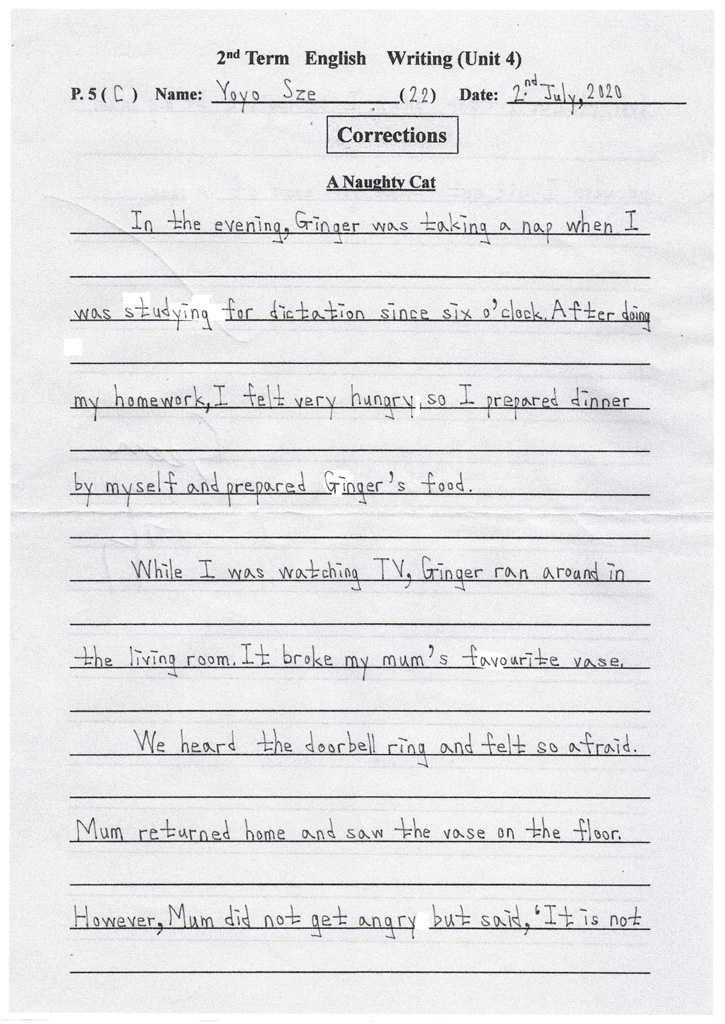 2nd Term English Writing (Unit 4)
P.5 ( C ) Name: Yoyo Sze (22) Date: 2nd July, 2020
Corrections
A Naughty Cat
In the evening, Ginger was taking a nap when I
was studying for dictation since six o'clock. After doing
my homework, I felt very hungry, so I prepared dinner
by myself and prepared Ginger's food.
While I was watching TV, Ginger ran around in
the living room. It broke my mum's favourite vase.
We heard the doorbell ring and felt so afraid.
Mum returned home and saw the vase on the floor.
However, Mum did not get angry but said, 'It is not